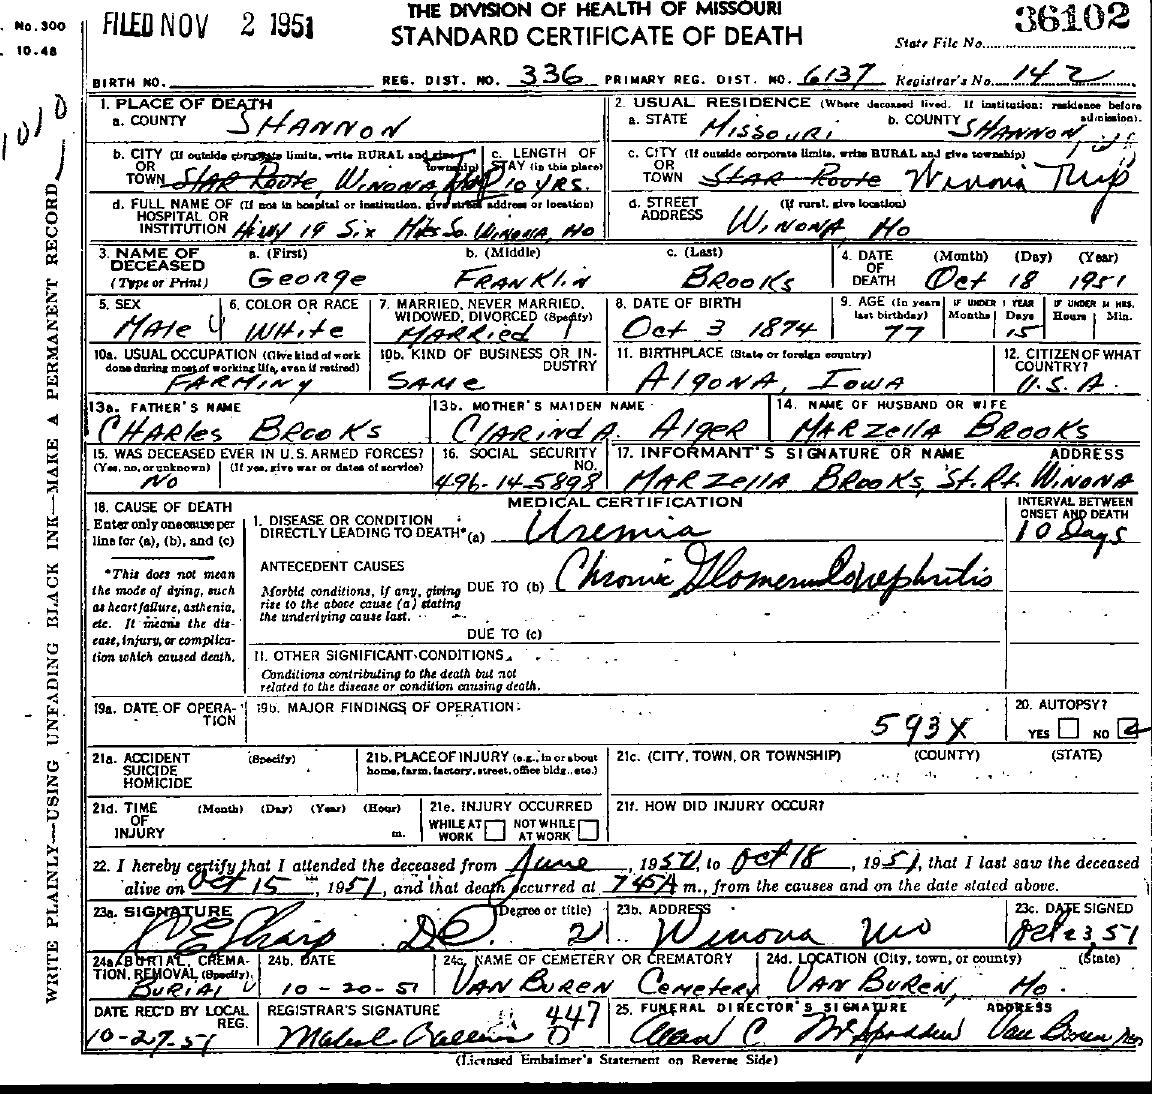 No. 300
10-48
FILED NOV 2 1951
THE DIVISION OF HEALTH OF MISSOURI
STANDARD CERTIFICATE OF DEATH
36102
State File No.
BIRTH NO. REG. DIST. NO. 336 PRIMARY REG. DIST. NO. 6137 Registrar's No. 142
1010
WRITE PLAINLY—USING UNFADING BLACK INK—MAKE A PERMANENT RECORD
1. PLACE OF DEATH
a. COUNTY SHANNON
2. USUAL RESIDENCE (Where deceased lived. If institution: residence before admission).
a. STATE MISSOURI b. COUNTY SHANNON
b. CITY (If outside corporate limits, write RURAL and give township) OR TOWN STAR ROUTE, WINONA,
c. LENGTH OF STAY (in this place) 10 YRS.
c. CITY (If outside corporate limits, write RURAL and give township) OR TOWN STAR ROUTE WINONA Twp
d. FULL NAME OF (If not in hospital or institution, give street address or location) HOSPITAL OR INSTITUTION Hiwy 19 Six Miles So. WINONA, MO
d. STREET ADDRESS (If rural, give location) WINONA, MO
3. NAME OF DECEASED (Type or Print) a. (First) George b. (Middle) FRANKLIN c. (Last) BROOKS
4. DATE OF DEATH (Month) (Day) (Year) Oct 18 1951
5. SEX MALE
6. COLOR OR RACE WHITE
7. MARRIED, NEVER MARRIED, WIDOWED, DIVORCED (Specify) MARRIED 1
8. DATE OF BIRTH Oct 3 1874
9. AGE (In years last birthday) 77 IF UNDER 1 YEAR Months Days 15 IF UNDER 24 HRS. Hours Min.
10a. USUAL OCCUPATION (Give kind of work done during most of working life, even if retired) FARMING
10b. KIND OF BUSINESS OR INDUSTRY SAME
11. BIRTHPLACE (State or foreign country) AlgonA, IOWA
12. CITIZEN OF WHAT COUNTRY? U.S.A.
13a. FATHER'S NAME CHARles BROOKS
13b. MOTHER'S MAIDEN NAME ClARINDA Alger
14. NAME OF HUSBAND OR WIFE MARZellA BROOKS
15. WAS DECEASED EVER IN U.S. ARMED FORCES? (Yes, no, or unknown) (If yes, give war or dates of service) NO
16. SOCIAL SECURITY NO. 496-14-5898
17. INFORMANT'S SIGNATURE OR NAME ADDRESS MARZellA BROOKS, St. Rt. WINONA
18. CAUSE OF DEATH
Enter only one cause per line for (a), (b), and (c)
*This does not mean the mode of dying, such as heart failure, asthenia, etc. It means the disease, injury, or complication which caused death.
MEDICAL CERTIFICATION
INTERVAL BETWEEN ONSET AND DEATH
I. DISEASE OR CONDITION DIRECTLY LEADING TO DEATH* (a) Uremia 10 Days
ANTECEDENT CAUSES
Morbid conditions, if any, giving rise to the above cause (a) stating the underlying cause last.
DUE TO (b) Chronic Glomerulonephritis
DUE TO (c)
II. OTHER SIGNIFICANT CONDITIONS
Conditions contributing to the death but not related to the disease or condition causing death.
19a. DATE OF OPERATION
19b. MAJOR FINDINGS OF OPERATION:
593X
20. AUTOPSY? YES NO
21a. ACCIDENT SUICIDE HOMICIDE (Specify)
21b. PLACE OF INJURY (e.g., in or about home, farm, factory, street, office bldg., etc.)
21c. (CITY, TOWN, OR TOWNSHIP) (COUNTY) (STATE)
21d. TIME OF INJURY (Month) (Day) (Year) (Hour) m.
21e. INJURY OCCURRED WHILE AT WORK NOT WHILE AT WORK
21f. HOW DID INJURY OCCUR?
22. I hereby certify that I attended the deceased from June, 1950, to Oct 18, 1951, that I last saw the deceased
alive on Oct 15, 1951, and that death occurred at 745A m., from the causes and on the date stated above.
23a. SIGNATURE (Degree or title) DO 2
23b. ADDRESS Winona Mo
23c. DATE SIGNED Oct 23, 51
24a. BURIAL, CREMATION, REMOVAL (Specify) BURIAL
24b. DATE 10-20-51
24c. NAME OF CEMETERY OR CREMATORY VAN BUREN Cemetery
24d. LOCATION (City, town, or county) (State) VAN BUREN, MO.
DATE REC'D BY LOCAL REG. 10-27-51
REGISTRAR'S SIGNATURE Mabel 447
25. FUNERAL DIRECTOR'S SIGNATURE ADDRESS C. McSpadden Van Buren Mo
(Licensed Embalmer's Statement on Reverse Side)